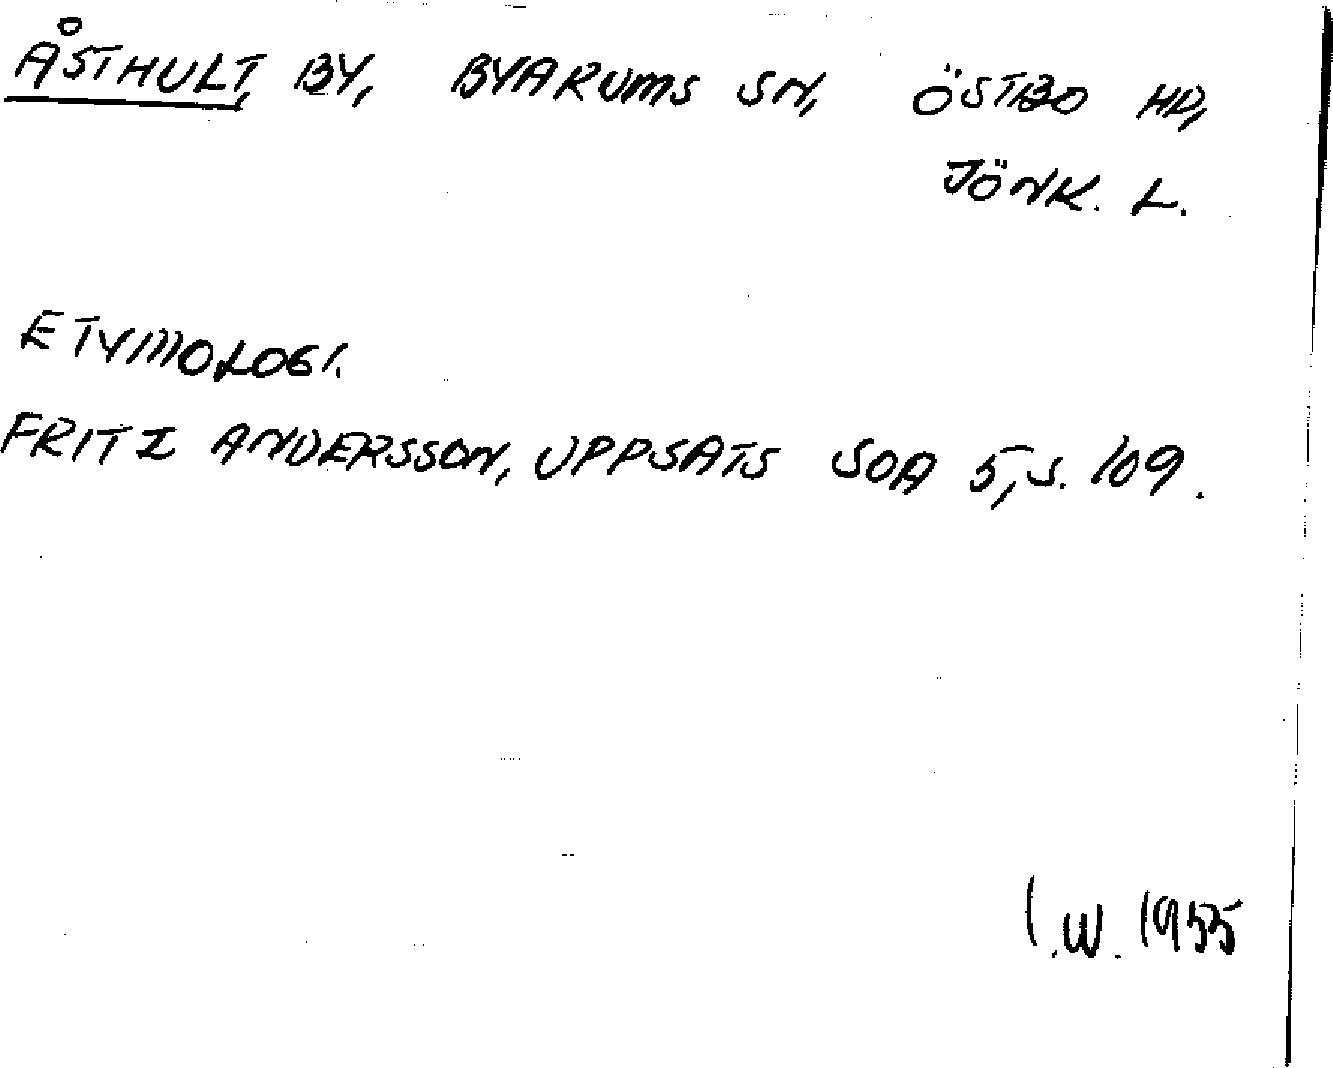 ÅSTHULT, BY, BYARUMS SN, ÖSTBO HD,
JÖNK. L.
ETYMOLOGI.
FRITZ ANDERSSON, UPPSATS SOA 5, S. 109.
I.W. 1955